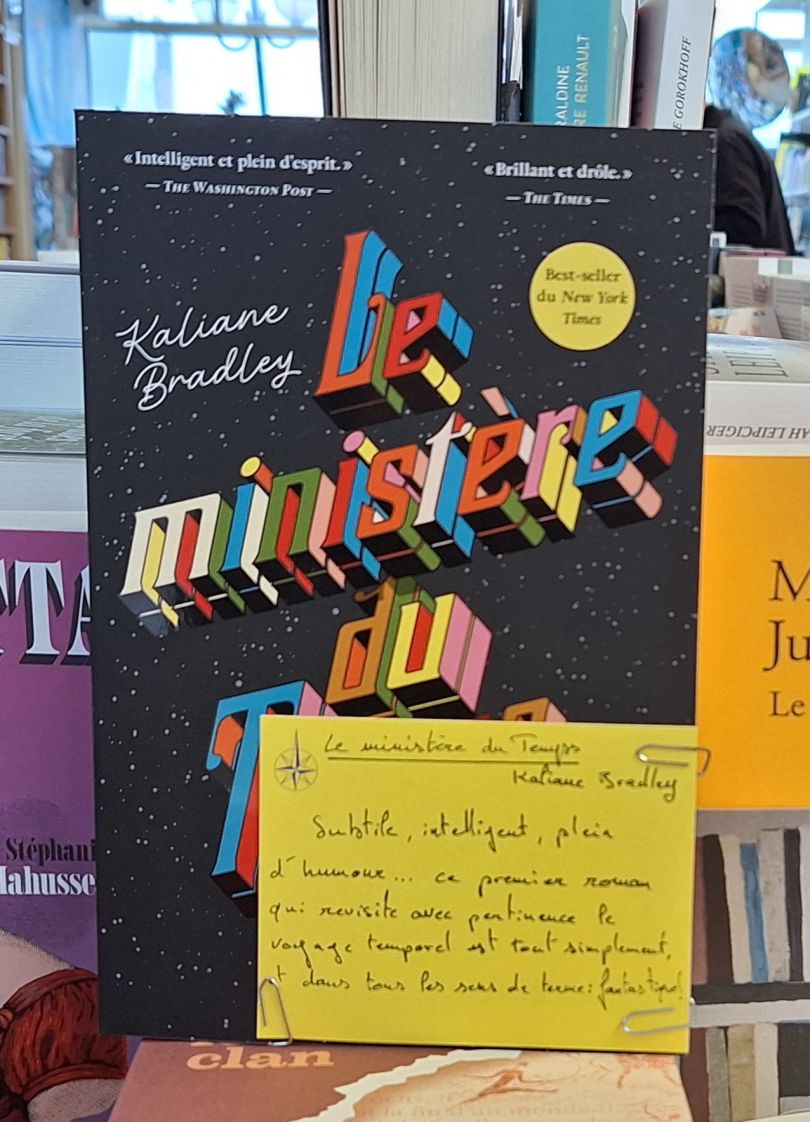 RALDINE
RE RENAULT
E GOROKHOFF
« Intelligent et plein d'esprit. »
— The Washington Post —
« Brillant et drôle. »
— The Times —
Best-seller
du New York
Times
Kaliane
Bradley
Le
ministère
du
T
Le ministère du Temps
Kaliane Bradley
Subtile, intelligent, plein
d'humour... ce premier roman
qui revisite avec pertinence le
voyage temporel est tout simplement,
t dans tous les sens de terme: fantastique!
AH LEIPCIGER
M
Ju
Le
TTA
Stéphani
Mahusse
clan